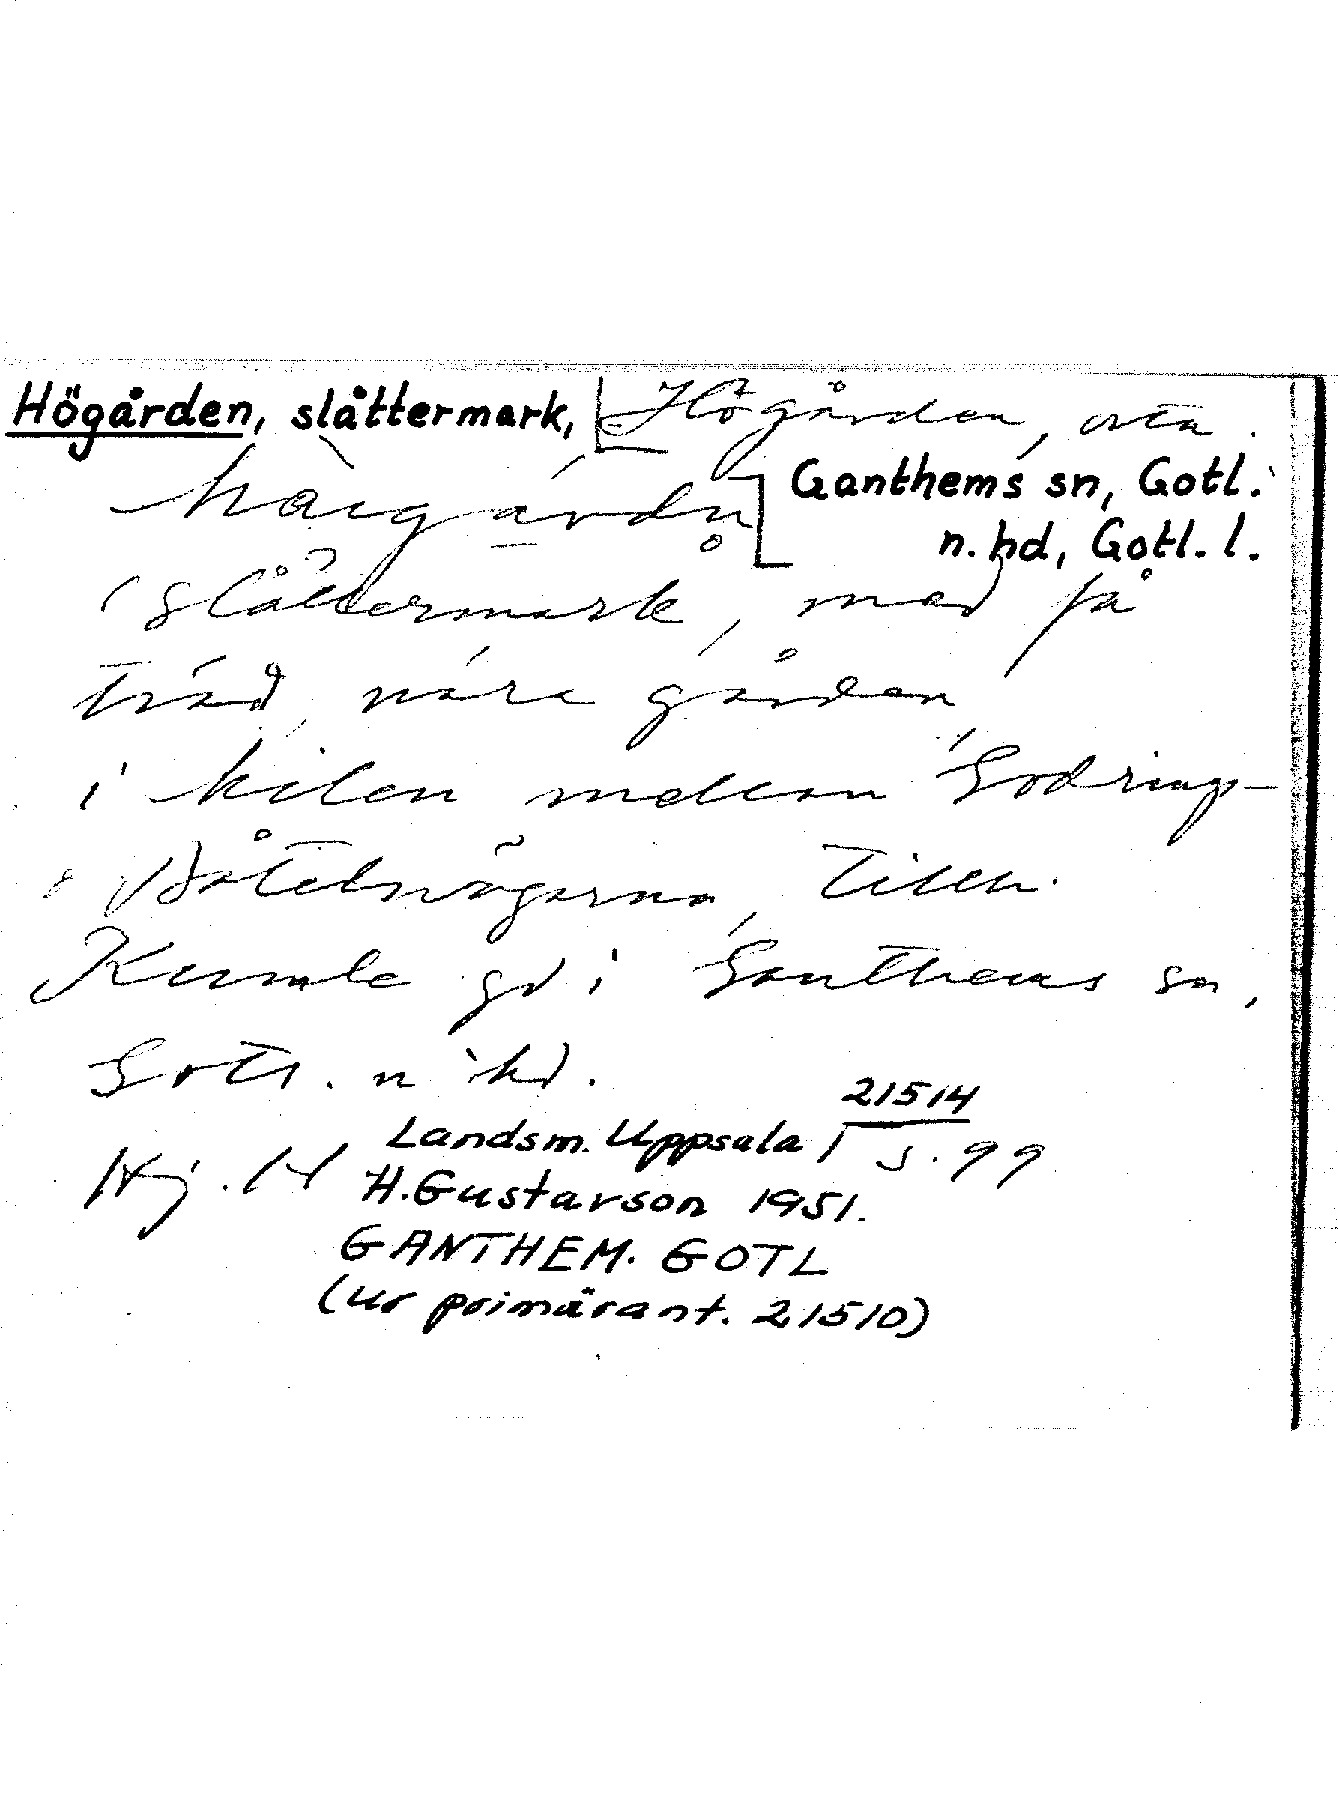 Högården, slåttermark,
Högården, östa.
Ganthems sn, Gotl.
n. hd, Gotl. l.
håigárdn̥
slåttermark, med få
träd, nära gården,
i kilen mellan Godrings-
o Båtelsvägarna, tillh.
Kumle gd i Ganthems sn,
Gotl. n hd.
21514
Landsm. Uppsala s. 99
Hj. H
H. Gustavson 1951.
GANTHEM. GOTL
(ur primärant. 21510)